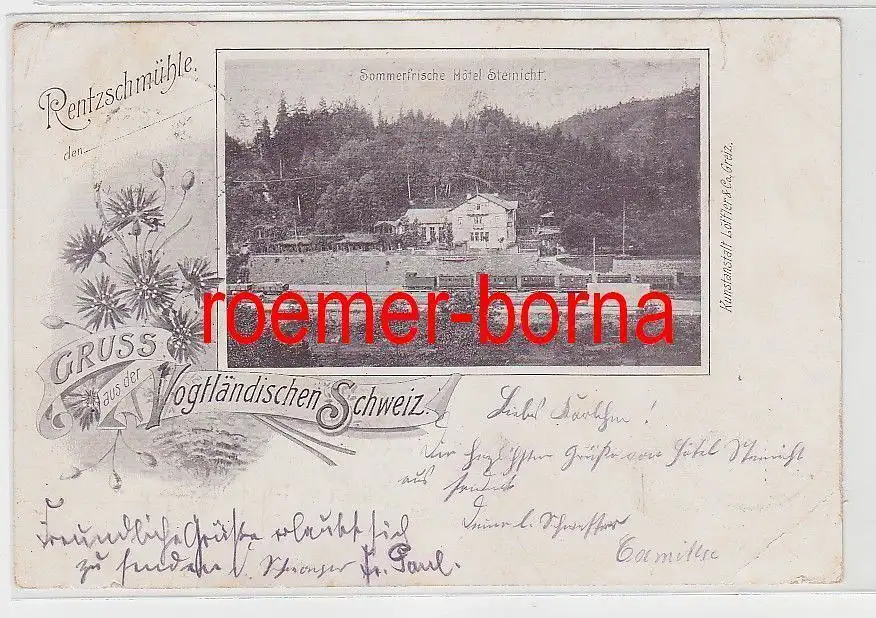 Rentzschmühle.
den
Sommerfrische Hôtel Steinicht.
Kunstanstalt Löffler & Co, Greiz.
roemer-borna
GRUSS
aus der
Vogtländischen Schweiz.
Liebs !
Die herzlichsten Grüße von Hôtel Steinicht
aus sendet
Deine l. Schwester
Camilla
Freundliche Grüße erlaubt sich
zu senden Schwager Fr. Paul.